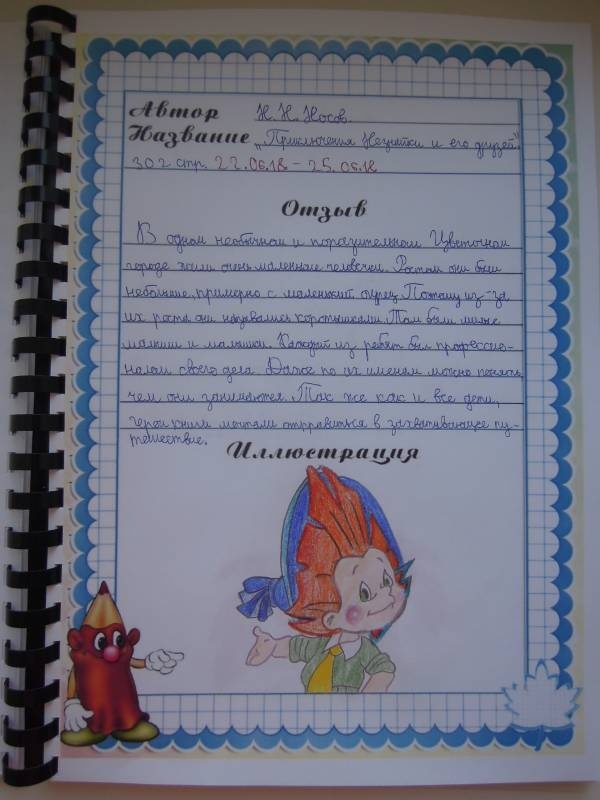 Автор Н. Н. Носов.
Название „Приключения Незнайки и его друзей"
302 стр. 22.06.18 - 25.06.18
Отзыв
В одном необычном и поразительном Цветочном
городе жили очень маленькие человечки. Ростом они были
небольшие, примерно с маленький огурец. Поэтому из-за
их роста они назывались коротышками. Там были милые
малыши и малышки. Каждый из ребят был професио-
налом своего дела. Даже по их именам можно понять,
чем они занимаются. Так же как и все дети,
герои книги мечтали отправиться в захватывающее пу-
тешествие.
Иллюстрация